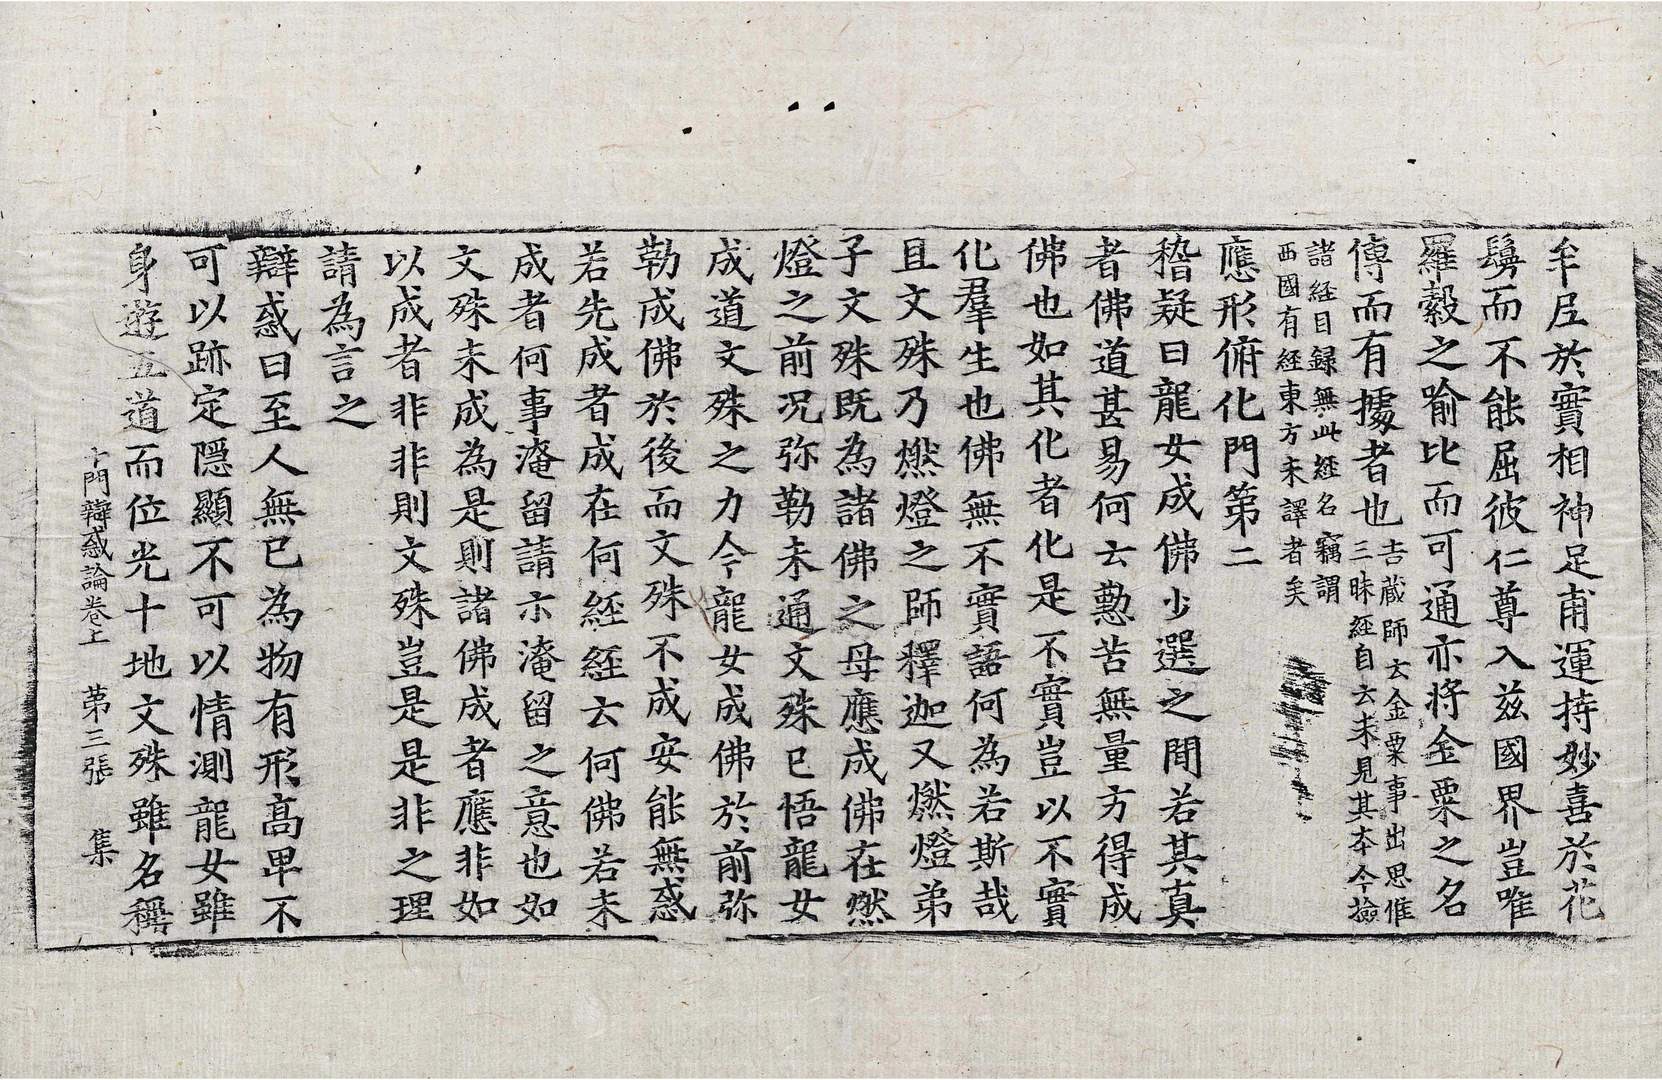 牟尼於實相神足甫運持妙喜於花
鬘而不能屈彼仁尊入兹國界豈唯
羅縠之喻比而可通亦将金粟之名
傳而有據者也吉蔵師云金粟事出思惟
三昧經自云未見其夲今撿
諸經目録無此經名竊謂
西國有經東方未譯者矣
應形俯化門第二
稽疑曰龍女成佛少選之間若其真
者佛道甚易何云懃苦無量方得成
佛也如其化者化是不實豈以不實
化羣生也佛無不實語何為若斯哉
且文殊乃燃燈之師釋迦又燃燈弟
子文殊既為諸佛之母應成佛在燃
燈之前况弥勒未通文殊已悟龍女
成道文殊之力今龍女成佛於前弥
勒成佛於後而文殊不成安能無惑
若先成者成在何經經云何佛若未
成者何事淹留請示淹留之意也如
文殊未成為是則諸佛成者應非如
以成者非非則文殊豈是是非之理
請為言之
辯惑曰至人無已為物有形髙卑不
可以跡定隱顯不可以情測龍女雖
身遊五道而位光十地文殊雖名稱
十門辯惑論卷上 第三張 集